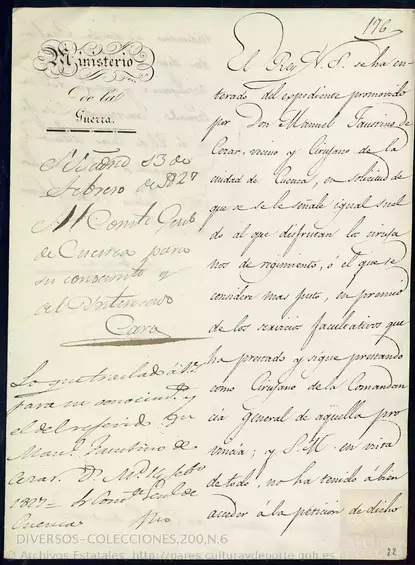 176
Ministerio
de la
Guerra.
Madrid 13 de
Febrero de 1827
Al Comte Genl
de Cuenca para
su conocimto y
del Interesado
Lo que traslado á V.
para su conocimto y
el del referido Dn
Manl Faustino de
Cozar. Ds Md 14 Febo
1827 = Sr Comte Genl de
Cuenca
El Rey N. S. se ha en-
terado del expediente promovido
por Don Manuel Faustino de
Cozar, vecino y Cirujano de la
ciudad de Cuenca, en solicitud de
que a se le señale igual suel
do al que disfrutan los ciruja
nos de regimiento, ó el que se
considere mas justo, en premio
de los servicios facultativos que
ha prestado y sigue prestando
como Cirujano de la Comandan
cia general de aquella pro
vincia; y S. M. en vista
de todo, no ha tenido á bien
acceder á la peticion de dicho
22
DIVERSOS-COLECCIONES,200,N.6
© Archivos Estatales, http://pares.culturaydeporte.gob.es